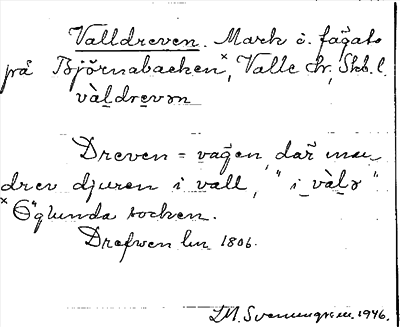 Valldreven. Mark o. fägata
på Björnabacken ˣ, Valle hr, Skb. l.
vàl̠dre̠vən
Dreven = vägen, där man
drev djuren i vall, "i vàl̠ə"
ˣ Öglunda socken.
Drefwen lm 1806.
1946.